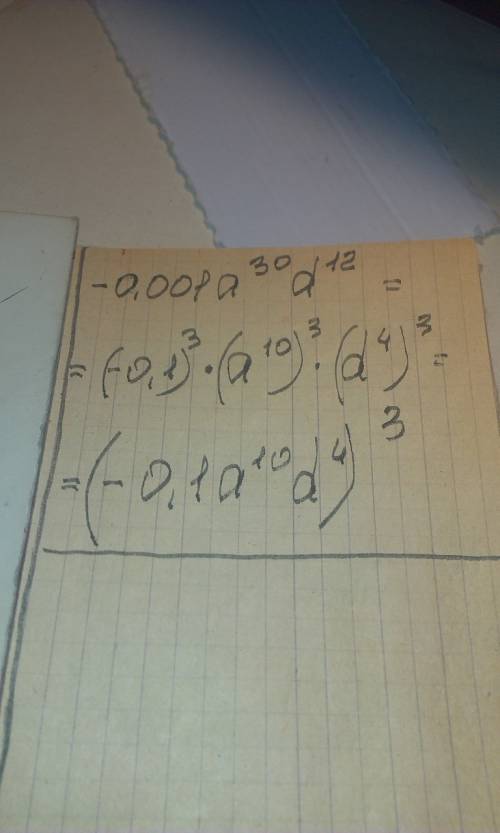 -0,001a³⁰d¹² =
= (-0,1)³ · (a¹⁰)³ · (d⁴)³ =
= (-0,1a¹⁰d⁴)³